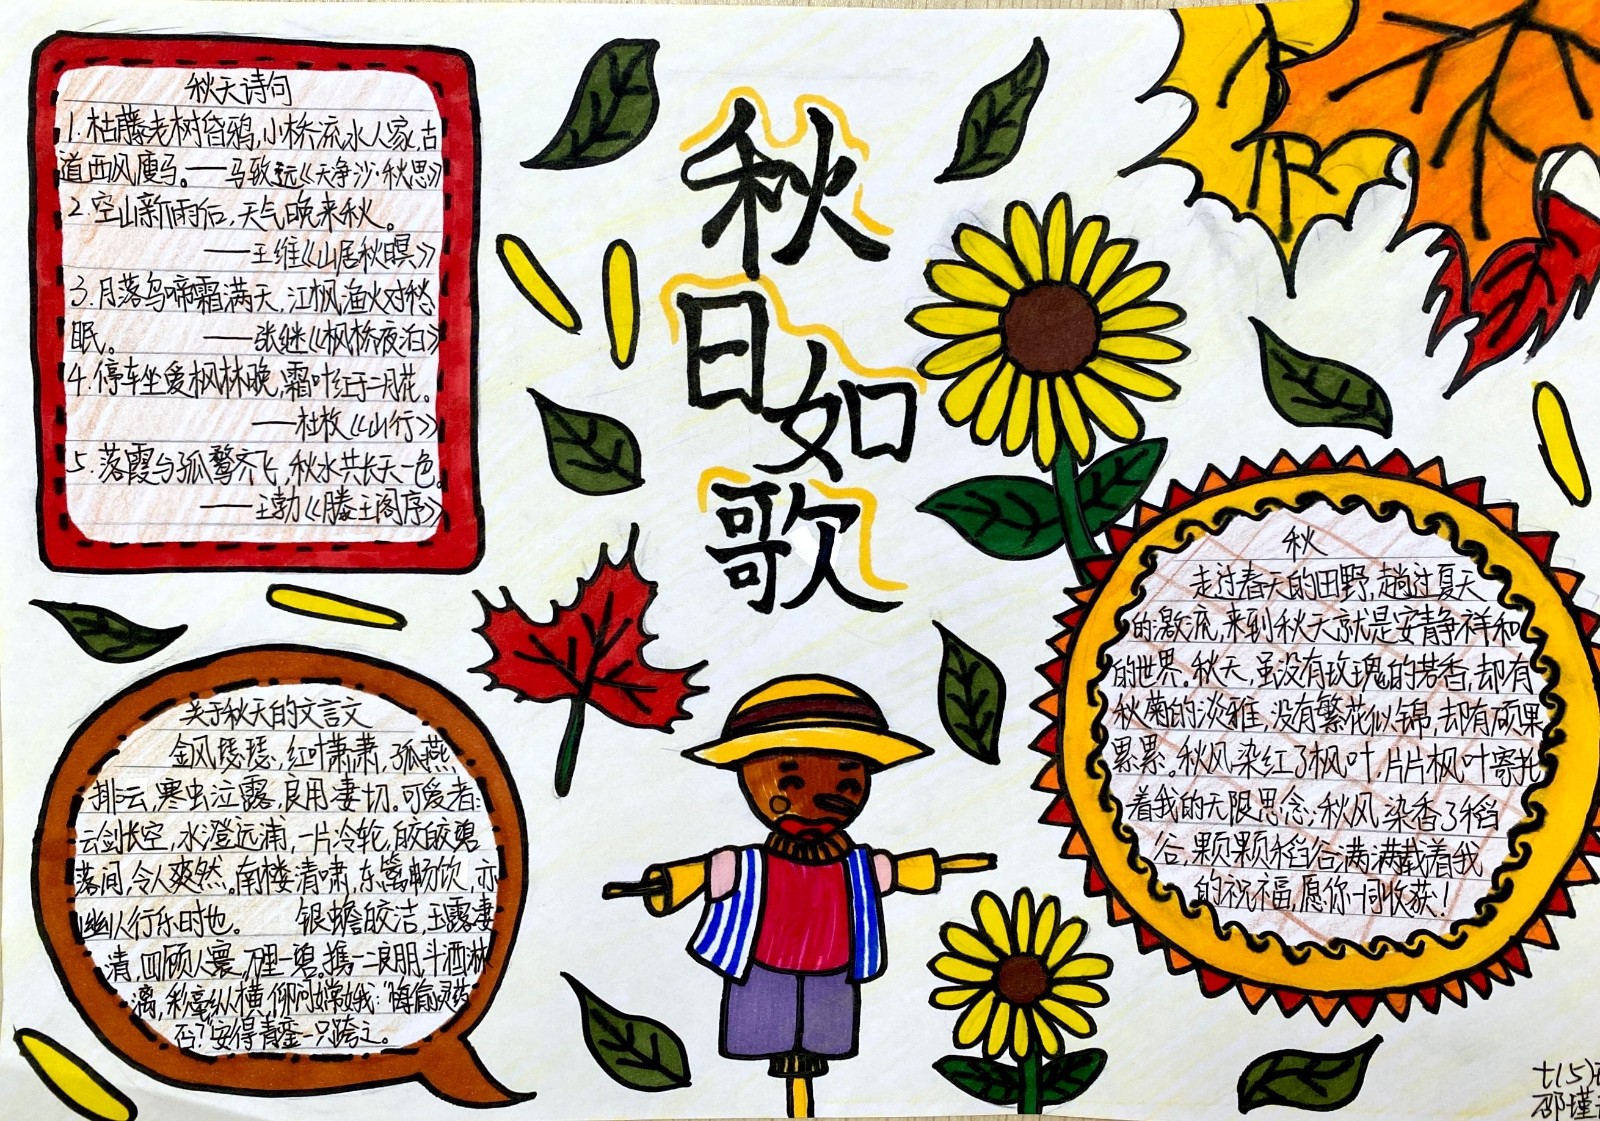 秋日如歌
秋天诗句
1.枯藤老树昏鸦,小桥流水人家,古
道西风瘦马。——马致远《天净沙·秋思》
2.空山新雨后,天气晚来秋。
——王维《山居秋暝》
3.月落乌啼霜满天,江枫渔火对愁
眠。——张继《枫桥夜泊》
4.停车坐爱枫林晚,霜叶红于二月花。
——杜牧《山行》
5.落霞与孤鹜齐飞,秋水共长天一色。
——王勃《滕王阁序》
关于秋天的文言文
金风瑟瑟,红叶萧萧,孤燕
排云,寒虫泣露,良用凄切。可爱者:
云剑长空,水澄远浦,一片冷轮,皎皎碧
落间,令人爽然。南楼清啸,东篱畅饮,亦
幽人行乐时也。 银蟾皎洁,玉露凄
清,四顾人寰,万里一碧。携一二良朋,斗酒淋
漓,彩毫纵横,仰问嫦娥:“悔偷灵药
否?”安得青鸾一只跨之。
秋
走过春天的田野,趟过夏天
的激流,来到秋天就是安静祥和
的世界。秋天,虽没有玫瑰的芳香,却有
秋菊的淡雅,没有繁花似锦,却有硕果
累累。秋风染红了枫叶,片片枫叶寄托
着我的无限思念;秋风染香了稻
谷,颗颗稻谷满满载着我
的祝福,愿你一同收获!
七(5)
邵瑾